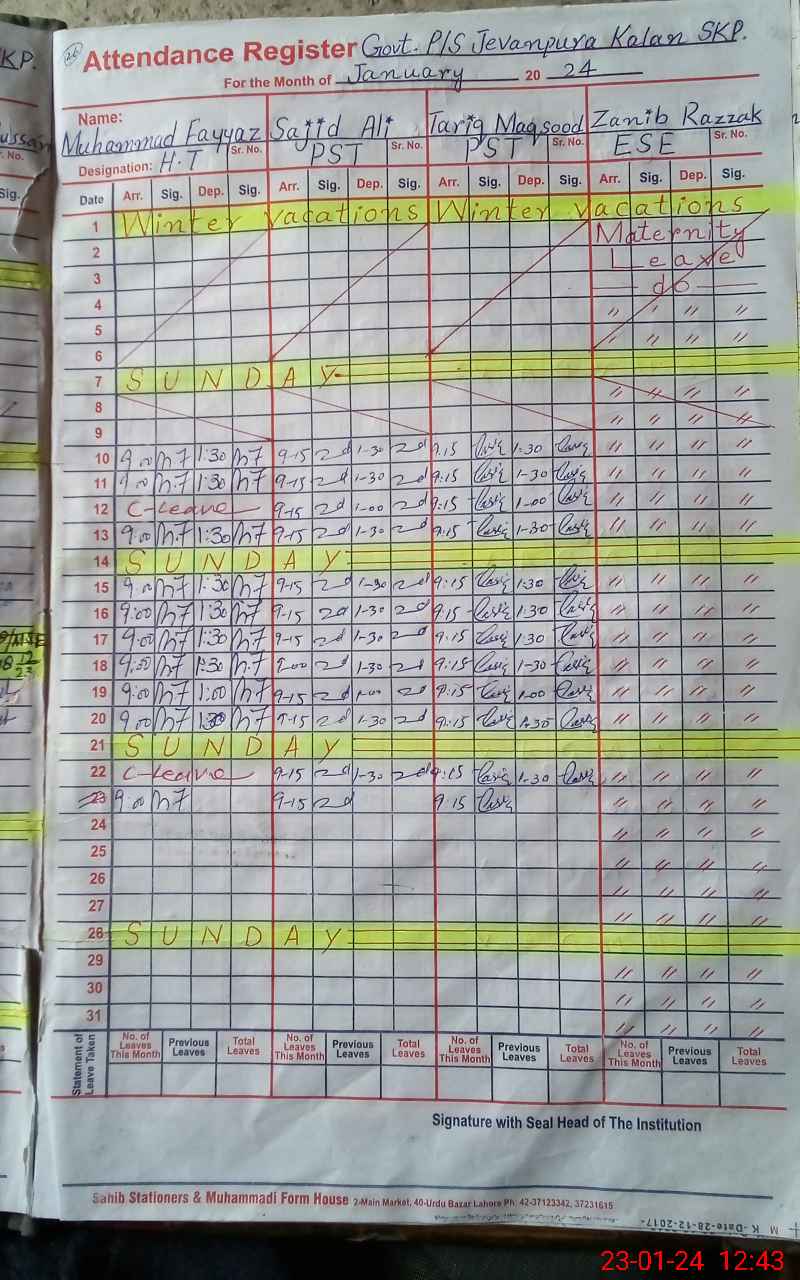 KP.
26
Attendance Register Govt. P/S Jevanpura Kalan SKP.
For the Month of January 20 24
Name:
Muhammad Fayyaz Sajid Ali Tariq Maqsood Zanib Razzak
Designation: H.T Sr. No. PST Sr. No. PST Sr. No. ESE Sr. No.
Date Arr. Sig. Dep. Sig. Arr. Sig. Dep. Sig. Arr. Sig. Dep. Sig. Arr. Sig. Dep. Sig.
1 Winter vacations Winter vacations
2 Maternity
3 Leave
4 do
5 " " " "
6 " " " "
7 SUNDAY
8 " " " "
9 " " " "
10 9:00 M7 1:30 M7 9-15 1-30 9:15 1:30 " " " "
11 9:00 M7 1:30 M7 9-15 1-30 9:15 1-30 " " " "
12 C-Leave 9-15 1-00 9:15 1-00 " " " "
13 9:00 M7 1:30 M7 9-15 1-30 9:15 1-30 " " " "
14 SUNDAY
15 9:00 M7 1:30 M7 9-15 1-30 9:15 1:30 " " " "
16 9:00 M7 1:30 M7 9-15 1-30 9:15 1:30 " " " "
17 9:00 M7 1:30 M7 9-15 1-30 9:15 1:30 " " " "
18 9:00 M7 1:30 M7 9-00 1-30 9:15 1-30 " " " "
19 9:00 M7 1:00 M7 9-15 1-00 9:15 1-00 " " " "
20 9:00 M7 1:30 M7 9-15 1-30 9:15 1-30 " " " "
21 SUNDAY
22 C-Leave 9-15 1-30 9:15 1-30 " " " "
23 9:00 M7 9-15 9:15 " " " "
24 " " " "
25 " " " "
26 " " " "
27 " " " "
28 SUNDAY
29 " " " "
30 " " " "
31 " " " "
Statement of Leave Taken No. of Leaves This Month Previous Leaves Total Leaves No. of Leaves This Month Previous Leaves Total Leaves No. of Leaves This Month Previous Leaves Total Leaves No. of Leaves This Month Previous Leaves Total Leaves
Signature with Seal Head of The Institution
Sahib Stationers & Muhammadi Form House 2-Main Market, 40-Urdu Bazar Lahore Ph: 42-37123342, 37231615
M K-Date-28-12-2017-
23-01-24 12:43